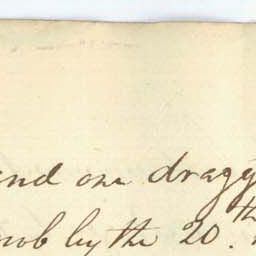 and one dragg
mob by the 20.th